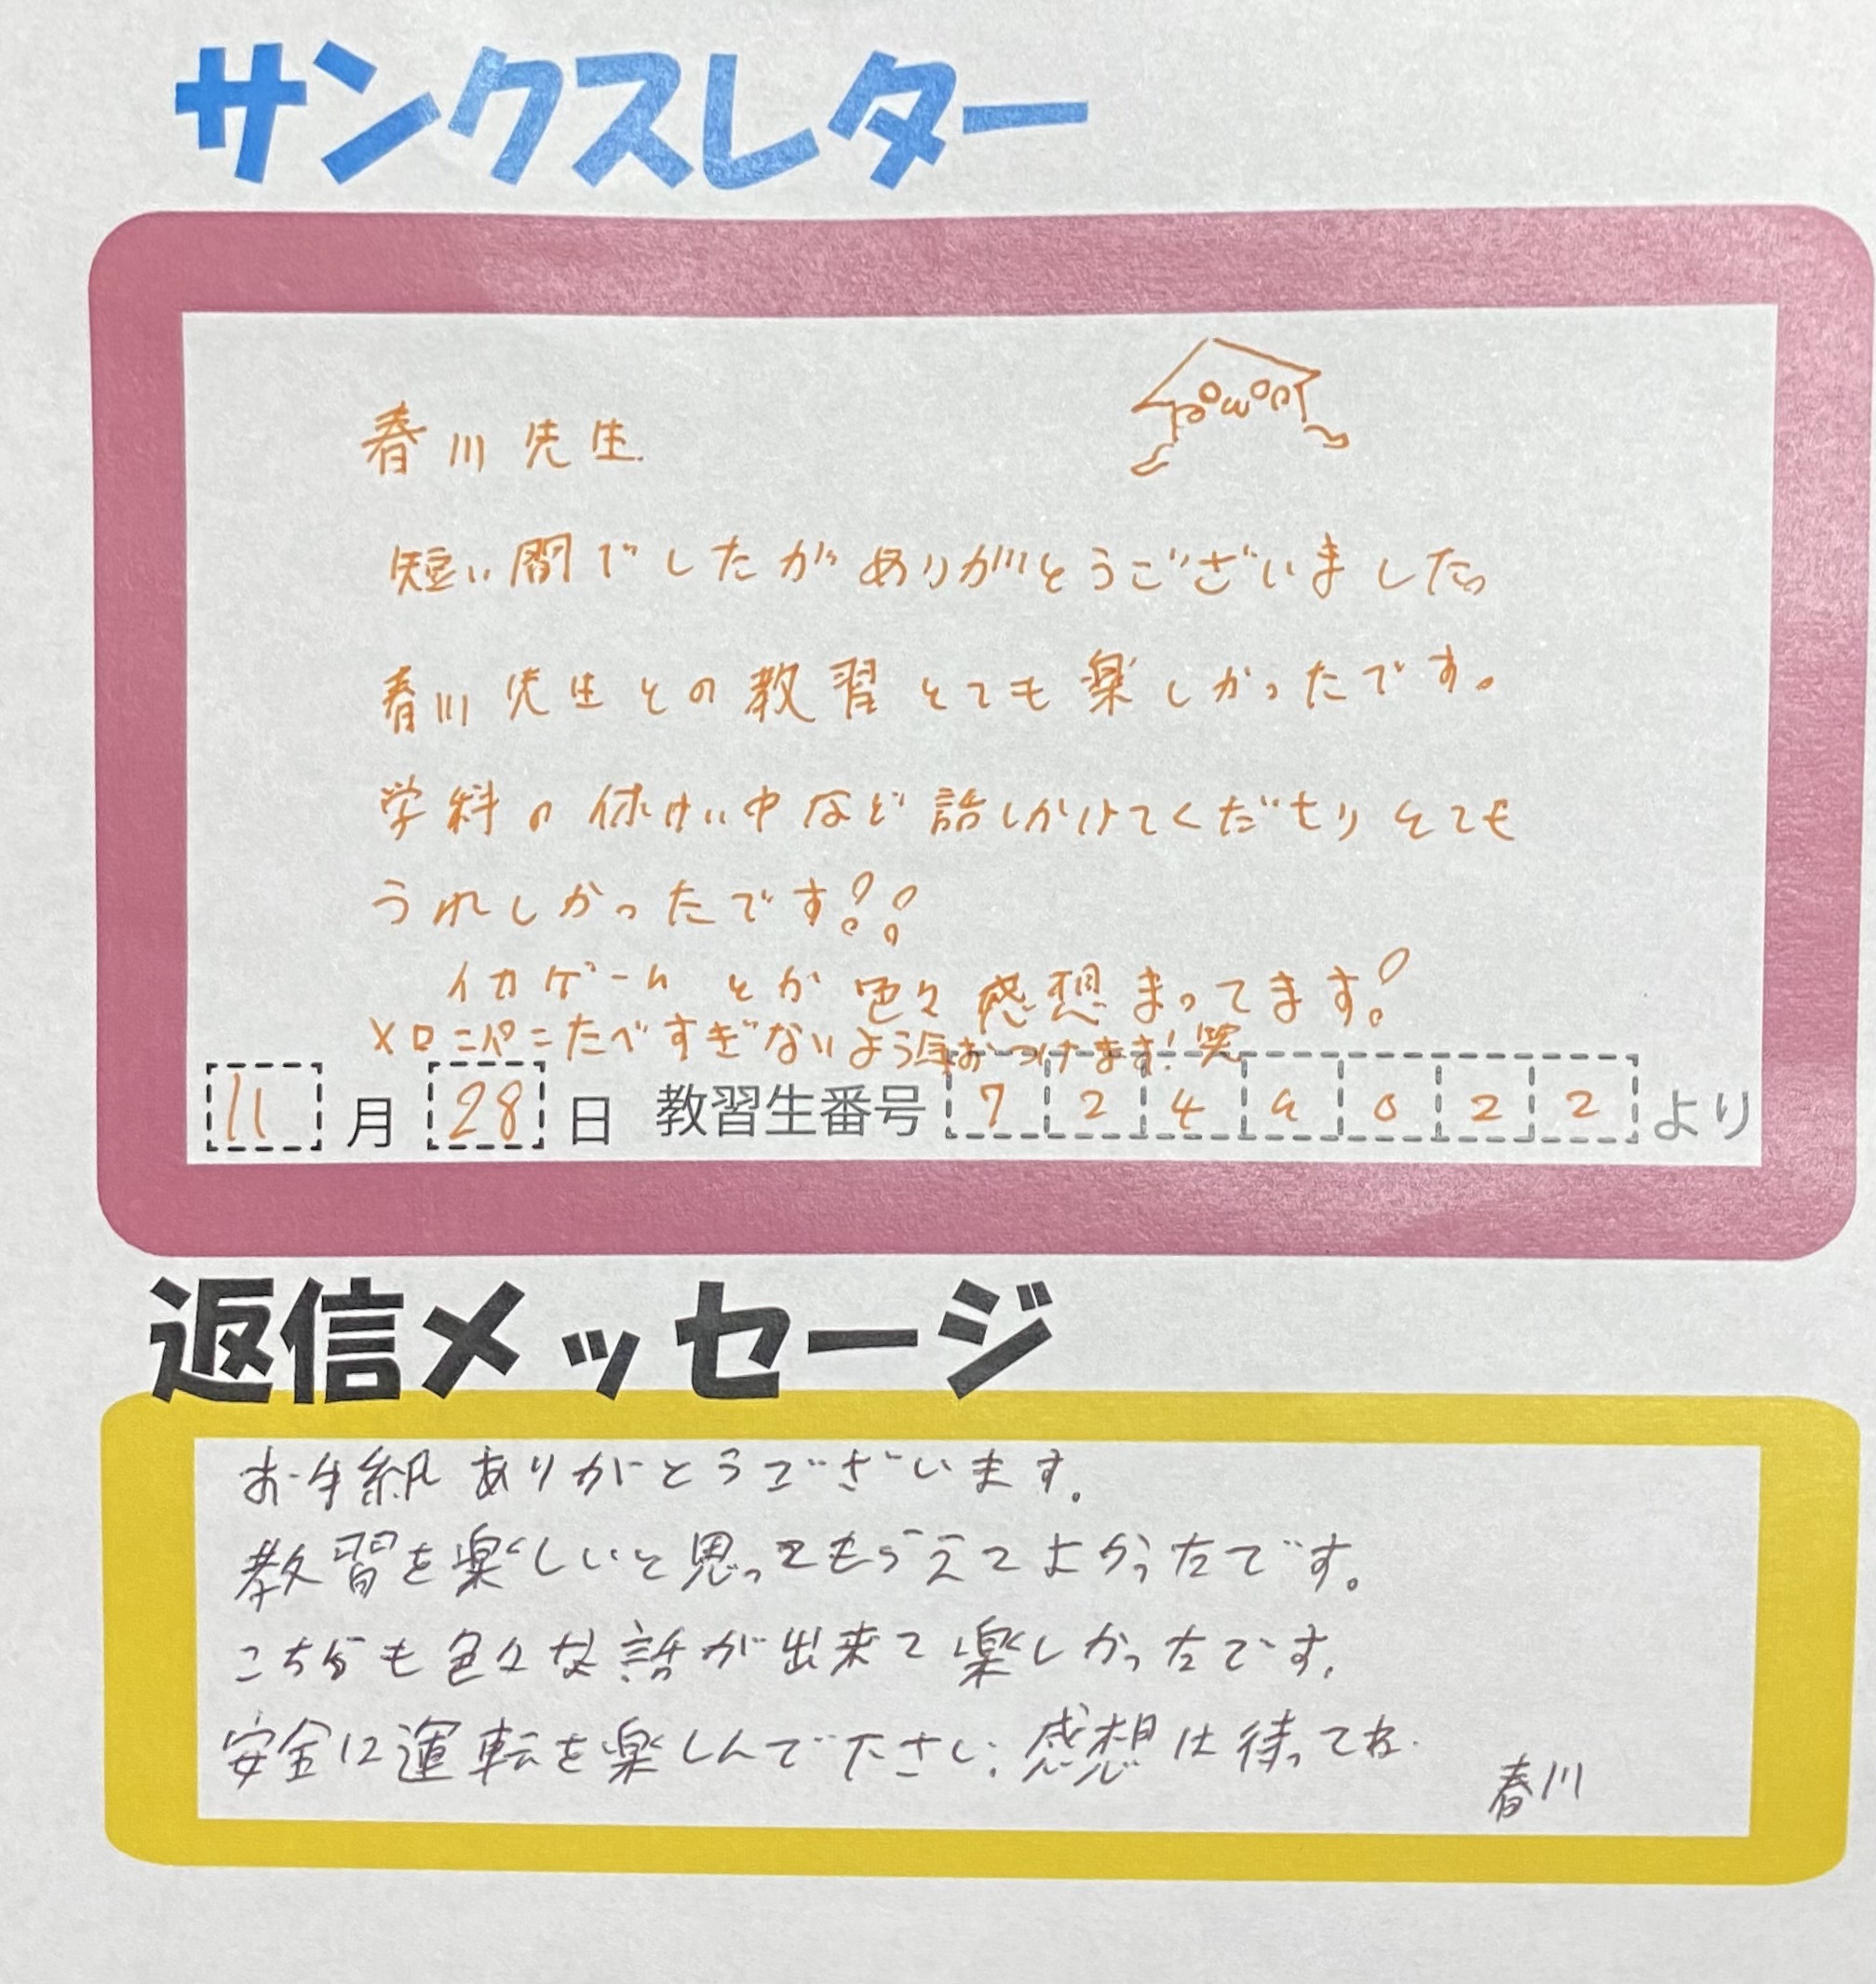 サンクスレター
春川先生
短い間でしたがありがとうございました。
春川先生との教習とても楽しかったです。
学科の休けい中など話しかけてくださりとても
うれしかったです!!
イカゲームとか色々感想まってます!
メロンパンたべすぎないよう気おつけます!笑
11月28日 教習生番号 7249022より
返信メッセージ
お手紙ありがとうございます。
教習を楽しいと思ってもらえてよかったです。
こちらも色々な話が出来て楽しかったです。
安全に運転を楽しんで下さい。感想は待ってね。
春川